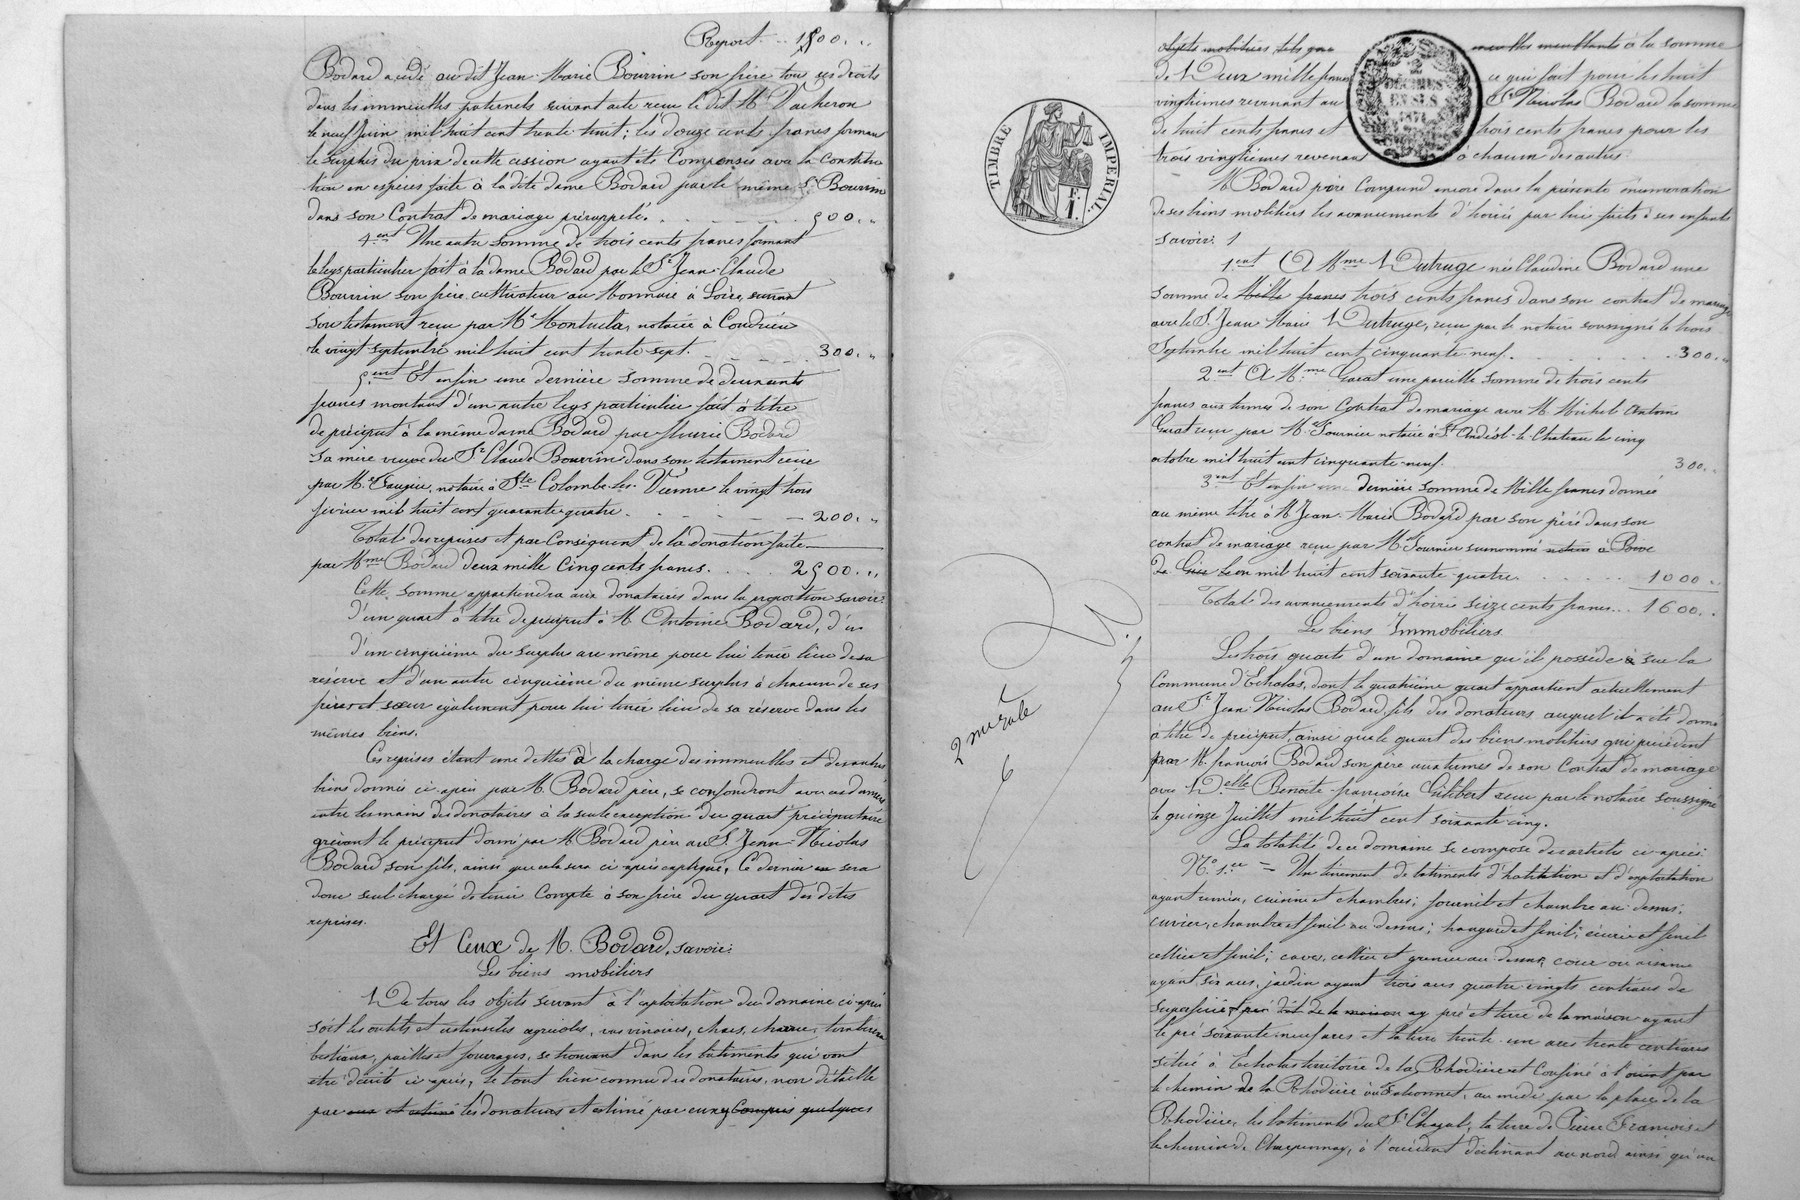 Report. .. 1500. ..
Bodard a cédé au dit Jean-Marie Bourrin son frère tous ses droits
dans les immeubles paternels suivant acte reçu le dit Me Vacheron
le neuf juin mil huit cent trente huit; les douze cents francs formant
le surplus du prix de cette cession ayant été compensés avec la constitu
tion en espèces faite à la dite dame Bodard par le même Sr Bourrin
dans son Contrat de mariage prérappelé. 500. ..
4ent Une autre somme de trois cents francs formant
le legs particulier fait à la dame Bodard par le Sr Jean-Claude
Bourrin son frère, cultivateur au Monnaie à Loire, suivant
son testament reçu par Me notaire à Condrieu
le vingt septembre mil huit cent trente sept. 300. ..
5ent Et enfin une dernière somme de deux cents
francs montant d'un autre legs particulier fait à titre
de préciput à la même dame Bodard par Bodard
sa mère veuve du Sr Claude Bourrin dans son testament reçu
par Me notaire à Ste Colombe-les-Vienne le vingt trois
février mil huit cent quarante quatre. 200. ..
Total des reprises et par Conséquent de la donation faite
par Mme Bodard deux mille Cinq cents francs. 2500. ..
Cette somme appartiendra aux donataires dans la proportion savoir:
d'un quart à titre de préciput à M. Antoine Bodard, d'un
d'un cinquième du surplus au même pour lui tenir lieu de sa
réserve et d'un autre cinquième du même surplus à chacun de ses
frères et sœur également pour lui tenir lieu de sa réserve dans les
mêmes biens.
Ces reprises étant une dettes à la charge des immeubles et des autres
biens donnés ci-après par M. Bodard père, se confondront avec ces derniers
entre les mains des donataires à la seule exception du quart préciputaire
grévant le préciput donné par M. Bodard père au Sr Jean-Nicolas
Bodard son fils, ainsi que cela sera ci-après expliqué, Ce dernier sera
donc seul chargé de tenir Compte à son frère du quart des dites
reprises.
Et Ceux de M. Bodard, savoir:
Les biens mobiliers
De tous les objets servant à l'exploitation du domaine ci-après
soit les outils et ustensiles agricoles, vas vinaires, chars, charrue, tombereau
bestiaux, pailles et fourrages, se trouvant dans les bâtiments qui vont
être décrits ci-après, le tout bien connu des donataires, non détaillé
par aux et estimé les donateurs et estimé par eux Compris quelques
TIMBRE IMPERIAL.
E.I.
2 DÉCIMES EN SUS 1871
2me rôle
objets mobiliers, tels que meubles meublants à la somme
de Deux mille francs ce qui fait pour les huit
vingtièmes revenant au Sr Nicolas Bodard la somme
de huit cents francs et trois cents francs pour les
trois vingtièmes revenant à chacun des autres.
M. Bodard père Comprend encore dans la présente énumération
de ses biens mobiliers les avancements d'hoirie par lui faits à ses enfants
savoir:
1ent A Mme Dutruge née Claudine Bodard une
somme de Mille francs trois cents francs dans son contrat de mariage
avec le Sr Jean Marie Dutruge, reçu par le notaire soussigné le trois
Septembre mil huit cent cinquante neuf. 300. ..
2ent A Mme Garat une pareille somme de trois cents
francs aux termes de son Contrat de mariage avec M. Michel Antoine
Garat reçu par Me Fournier notaire à St Andéol-le-Chateau le cinq
octobre mil huit cent cinquante neuf. 300. ..
3ent Et enfin une dernière somme de Mille francs donnée
au même titre à M. Jean-Marie Bodard par son père dans son
contrat de mariage reçu par Me Fournier surnommé notaire à
mil huit cent soixante quatre. 1000 ..
Total des avancements d'hoirie seize cents francs. .. 1600. ..
Les biens Immobiliers.
Les trois quarts d'un domaine qu'il possède sur la
Commune d'Echalas, dont le quatrième quart appartient actuellement
au Sr Jean-Nicolas Bodard, fils des donateurs auquel il a été donné
à titre de préciput, ainsi que le quart des biens mobiliers qui précèdent
par M. François Bodard son père aux termes de son Contrat de mariage
avec Delle Benoîte-Françoise Gilibert reçu par le notaire soussigné
le quinze Juillet mil huit cent soixante cinq.
La totalité de ce domaine se compose des articles ci-après:
No 1er = Un tènement de bâtiments d'habitation et d'exploitation
ayant cuisine et chambres; fournil et chambre au-dessus;
cuvier, chambre et fenil au-dessus; hangard et fenil; écurie et fenil
cellier et fenil; caves, cellier et grenier au-dessus, cour ou aisance
ayant six ares, jardin ayant trois ares quatre vingts centiares de
superficie, pré dit de la maison pré et terre de la maison ayant
le pré soixante neuf ares et la terre trente-un ares trente centiares
situé à Echalas territoire de la Rhodière et Confiné à l'orient par
le chemin de la Rhodière au midi par la place de la
Rhodière, les bâtiments du Sr Chazal, la terre de Pierre François et
le chemin de à l'occident déclinant au nord ainsi qu'au